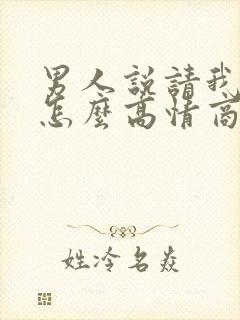 男人說請我
怎麼高情商
姓冷名焱